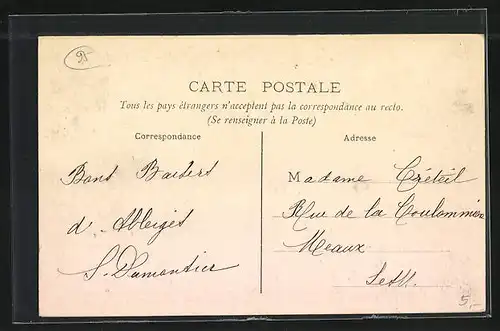 CARTE POSTALE
Tous les pays étrangers n'acceptent pas la correspondance au recto.
(Se renseigner à la Poste)
Correspondance
Adresse
Bons Baisers
d'Ableiges
S. Damontier
Madame Créteil
Rue de la Coulommière
Meaux
SetM.
5,-